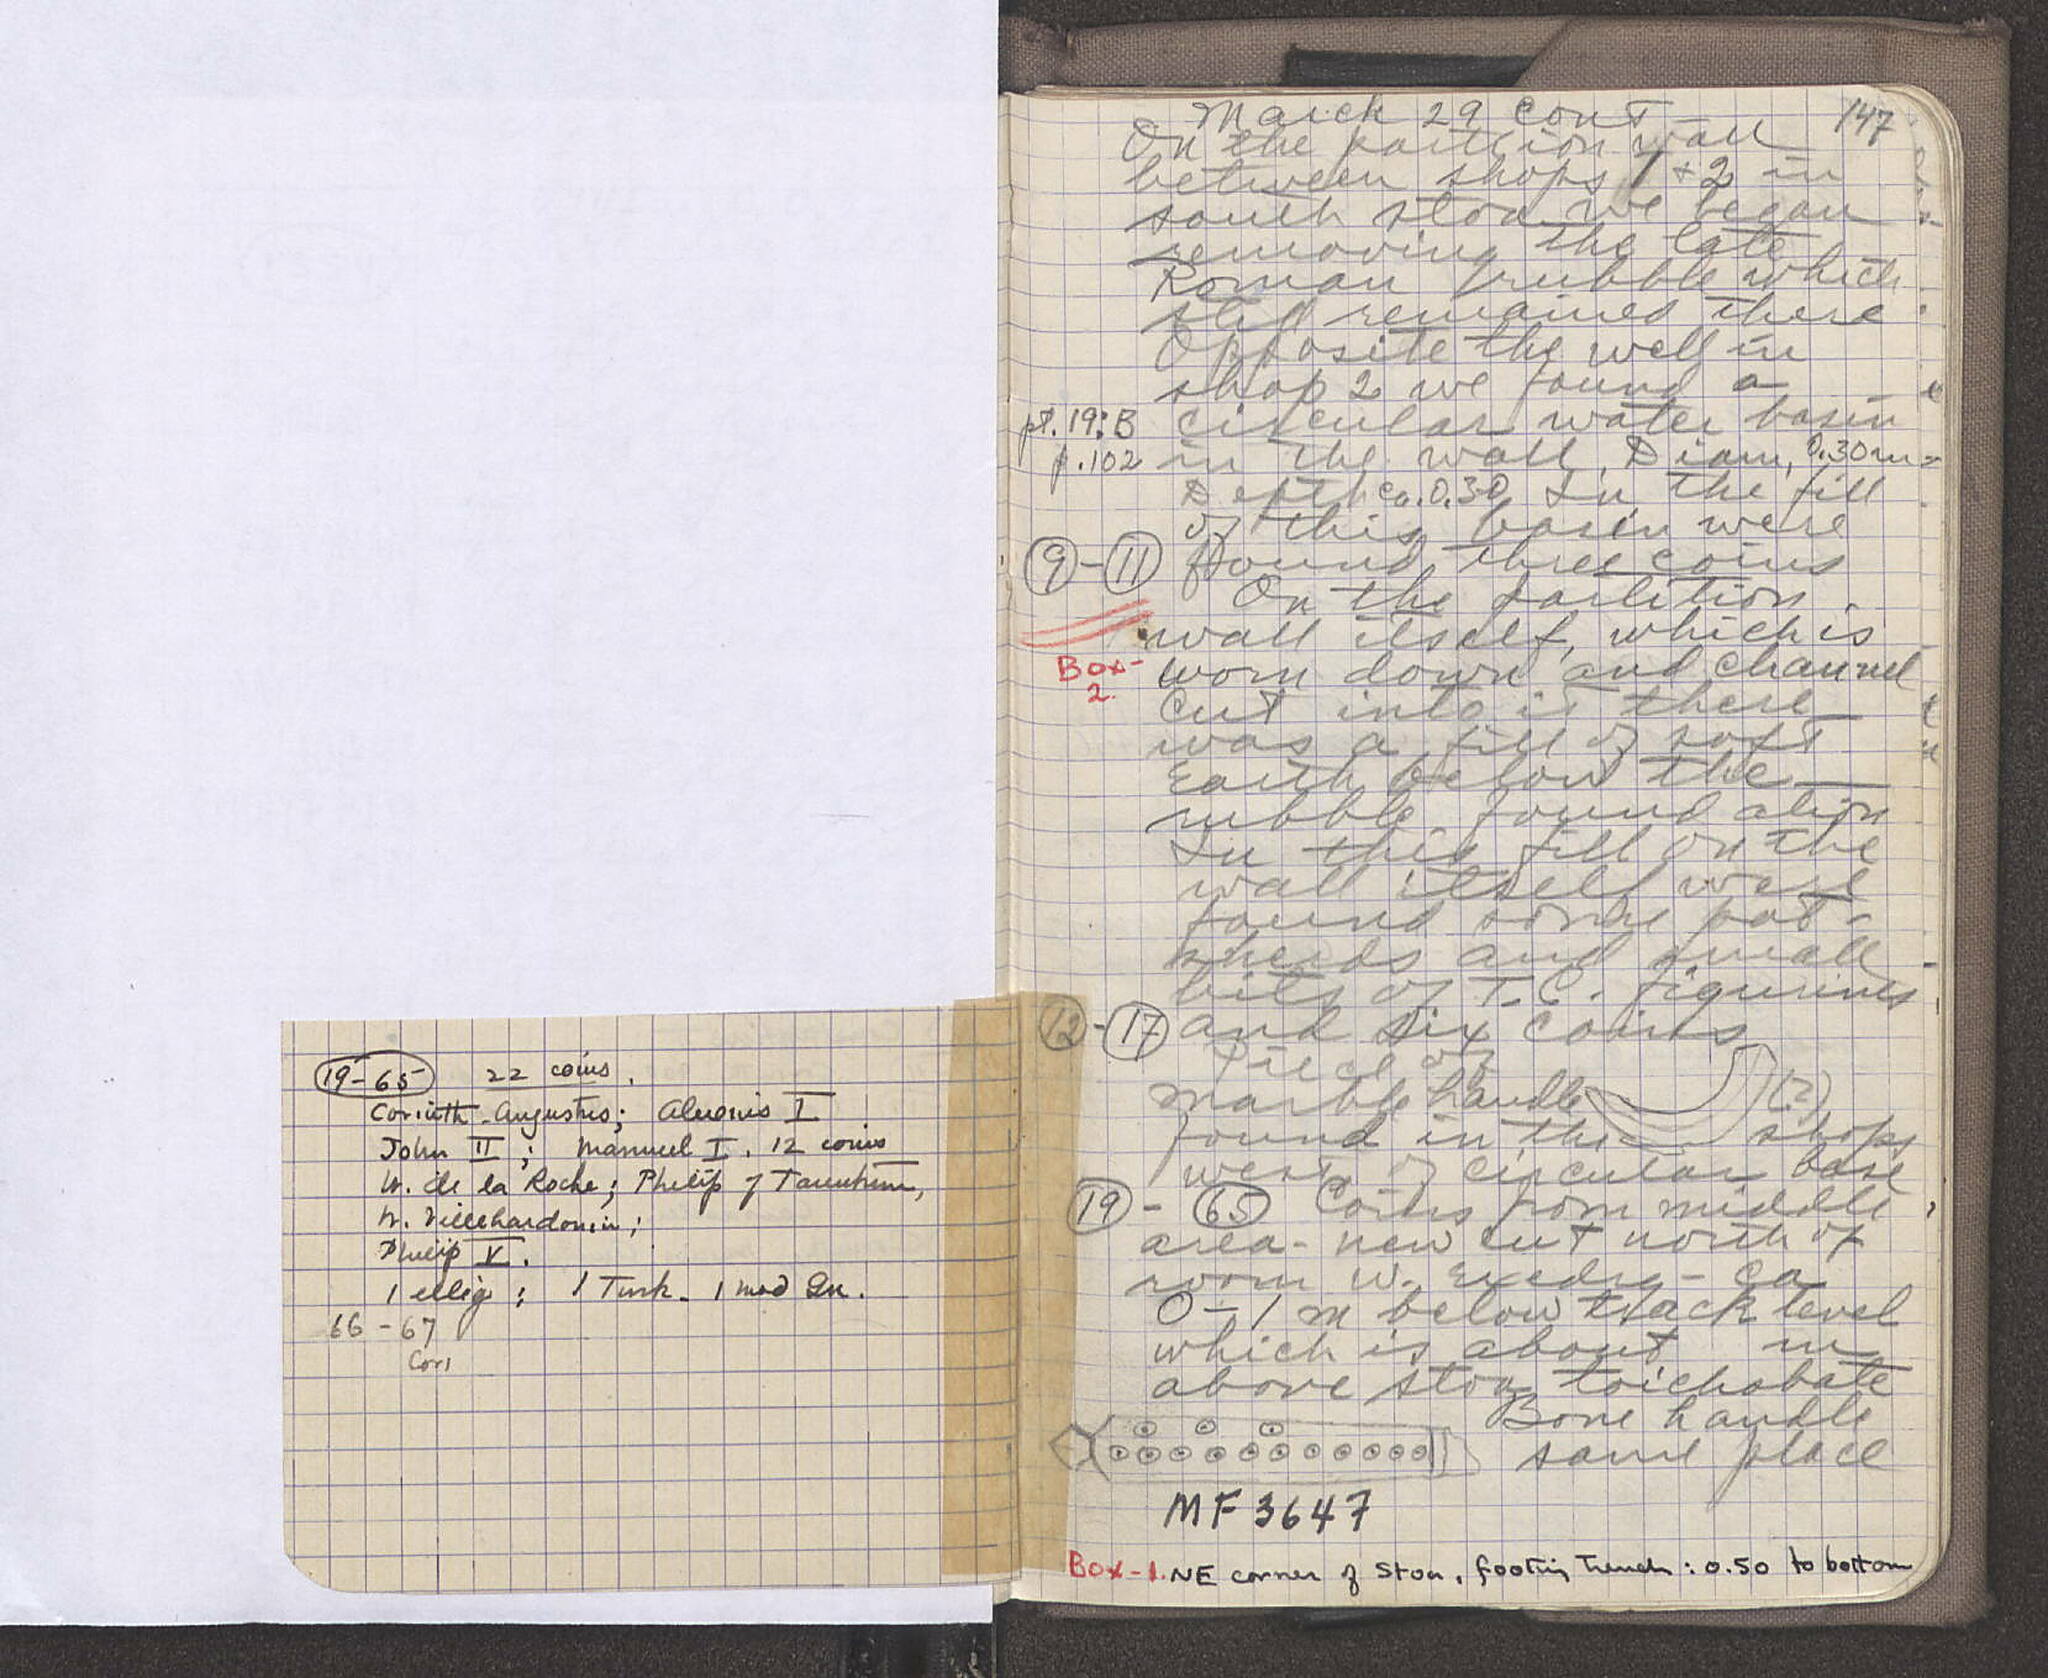 19-65 22 coins.
Corinth-Augustus; Alexius I
John II; Manuel I. 12 coins
W. de la Roche; Philip of Tarentum,
W. Villehardouin;
Philip V.
1 illeg; 1 Turk. 1 mod Gk.
66-67
Cori
147
March 29 cont
On the partition wall
between shops 1 + 2 in
south stoa we began
removing the late
Roman rubble which
still remained there
Opposite the well in
shop 2 we found a
pt. 19:B circular water basin
p.102 in the wall, Diam, 0.30m
Depth ca. 0.30 In the fill
of this basin were
9-11 found three coins
On the partition
wall itself, which is
Box-2. worn down and channel
cut into it there
was a fill of soft
earth below the
rubble foundation
In this fill on the
wall itself were
found some pot-
sherds and small
bits of T.C. figurines
12-17 and six coins
Piece of
marble handle (?)
found in the shops
west of circular base
19 - 65 Coins from middle
area - new cut north of
room w. Exedra - ca
0-1 m below track level
which is about m
above stoa toichobate
Bone handle
same place
MF 3647
Box-1. NE corner of Stoa, footing trench: 0.50 to bottom